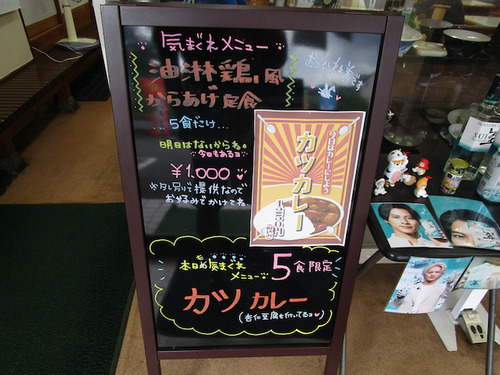 気まぐれメニュー
油淋鶏風
からあげ定食
...5食だけ...
明日はないからね。
今日もあるヨ
¥1,000
※タレ別で提供なので
お好みでかけてね。
今日はカレーにしよう
カツカレー
本日の気まぐれ
メニュー
5食限定
カツカレー
(杏仁豆腐も付いてるヨ)